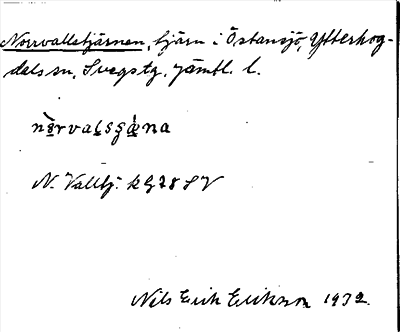 Norrvallstjärnen, tjärn i Östansjö, Ytterhog-
dals sn, Svegs tg, Jämtl. l.
nòrvalsʂæ̀na
N. Valltj. k G78 SV
Nils Erik Erikson 1932.